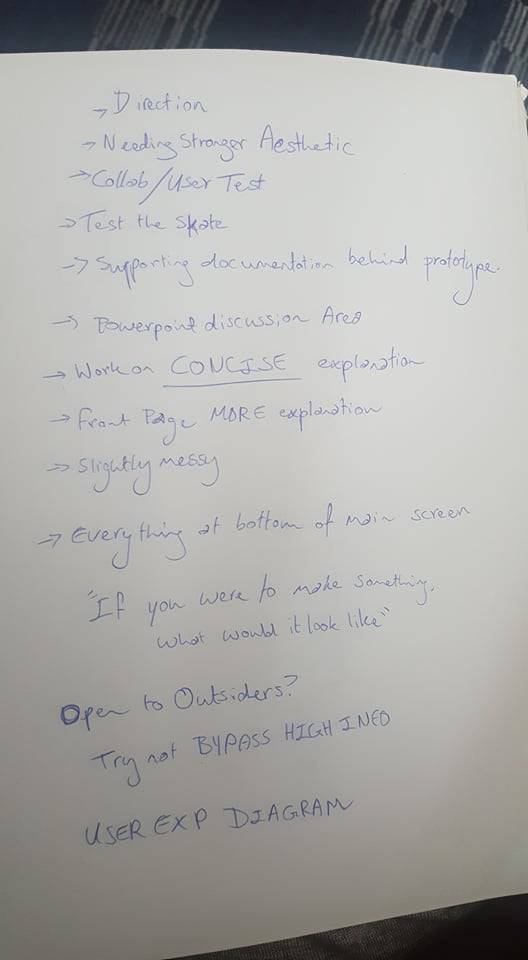 → Direction
→ Needing Stronger Aesthetic
→ Collab/User Test
→ Test the Skate
→ Supporting documentation behind prototype.
→ Powerpoint discussion Area
→ Work on CONCISE explanation
→ Front Page MORE explanation
→ Slightly messy
→ Everything at bottom of main screen
"If you were to make something,
what would it look like"
Open to Outsiders?
Try not BYPASS HIGH INFO
USER EXP DIAGRAM